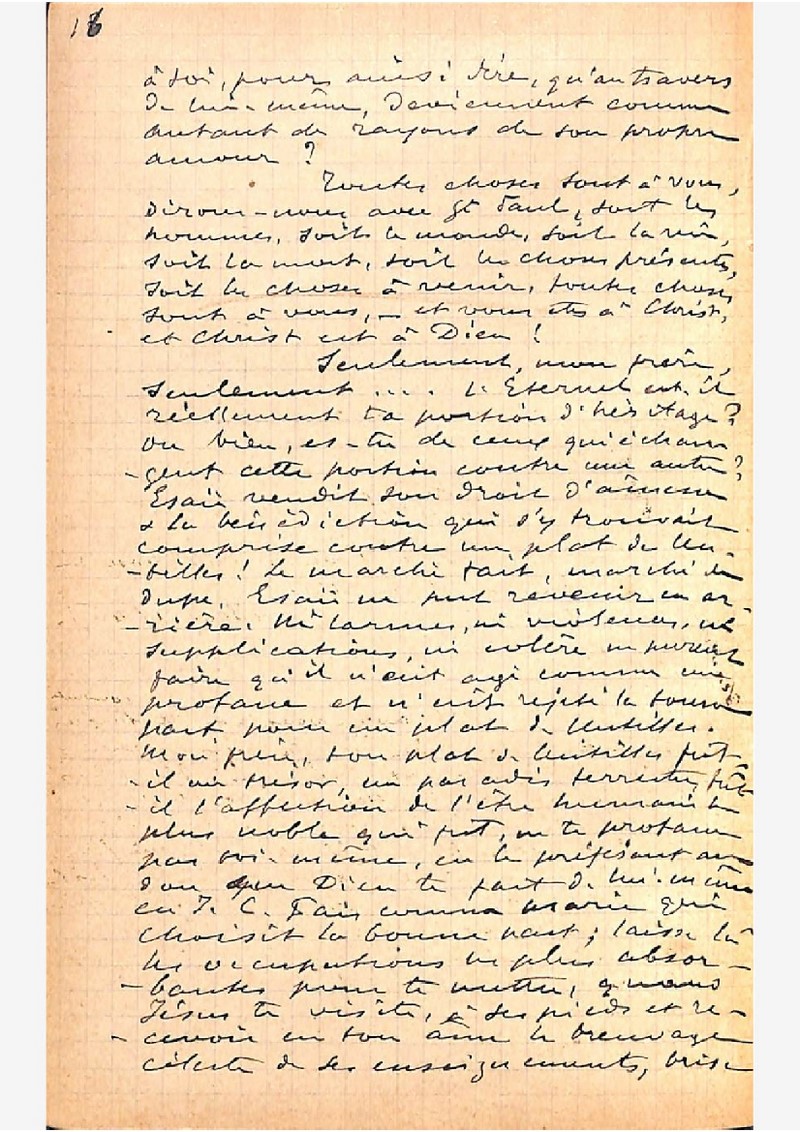 18
à soi, pour ainsi dire, qu'au travers
de lui-même, deviennent comme
autant de rayons de son propre
amour ?
Toutes choses sont à vous,
dirons-nous avec St Paul, soit les
hommes, soit le monde, soit la vie,
soit la mort, soit les choses présentes,
soit les choses à venir, toutes choses
sont à vous, – et vous êtes à Christ,
et Christ est à Dieu !
Seulement, mon frère,
seulement .... L'Eternel est-il
réellement ta portion d'héritage ?
ou bien, es-tu de ceux qui échan
-gent cette portion contre une autre ?
Esaü vendit son droit d'aînesse
& la bénédiction qui s'y trouvait
comprise contre un plat de len-
-tilles ! Le marché fait, marché de
dupe, Esaü ne put revenir en ar-
-rière. Ni larmes, ni violences, ni
supplications, ni colère ne purent
faire qu'il n'eût agi comme un
profane et n'eût rejeté la bonne
part pour un plat de lentilles.
Mon frère, ton plat de lentilles fût-
-il un trésor, un paradis terrestre, fût
-il l'affection de l'être humain le
plus noble qui fût, ne te profane
pas toi-même, en le préférant au
don que Dieu te fait de lui-même
en J. C. Fais comme Marie qui
choisit la bonne part ; laisse là
les occupations les plus absor-
-bantes pour te mettre, quand
Jésus te visite, à ses pieds et re-
-cevoir en ton âme le breuvage
céleste de ses enseignements, brise